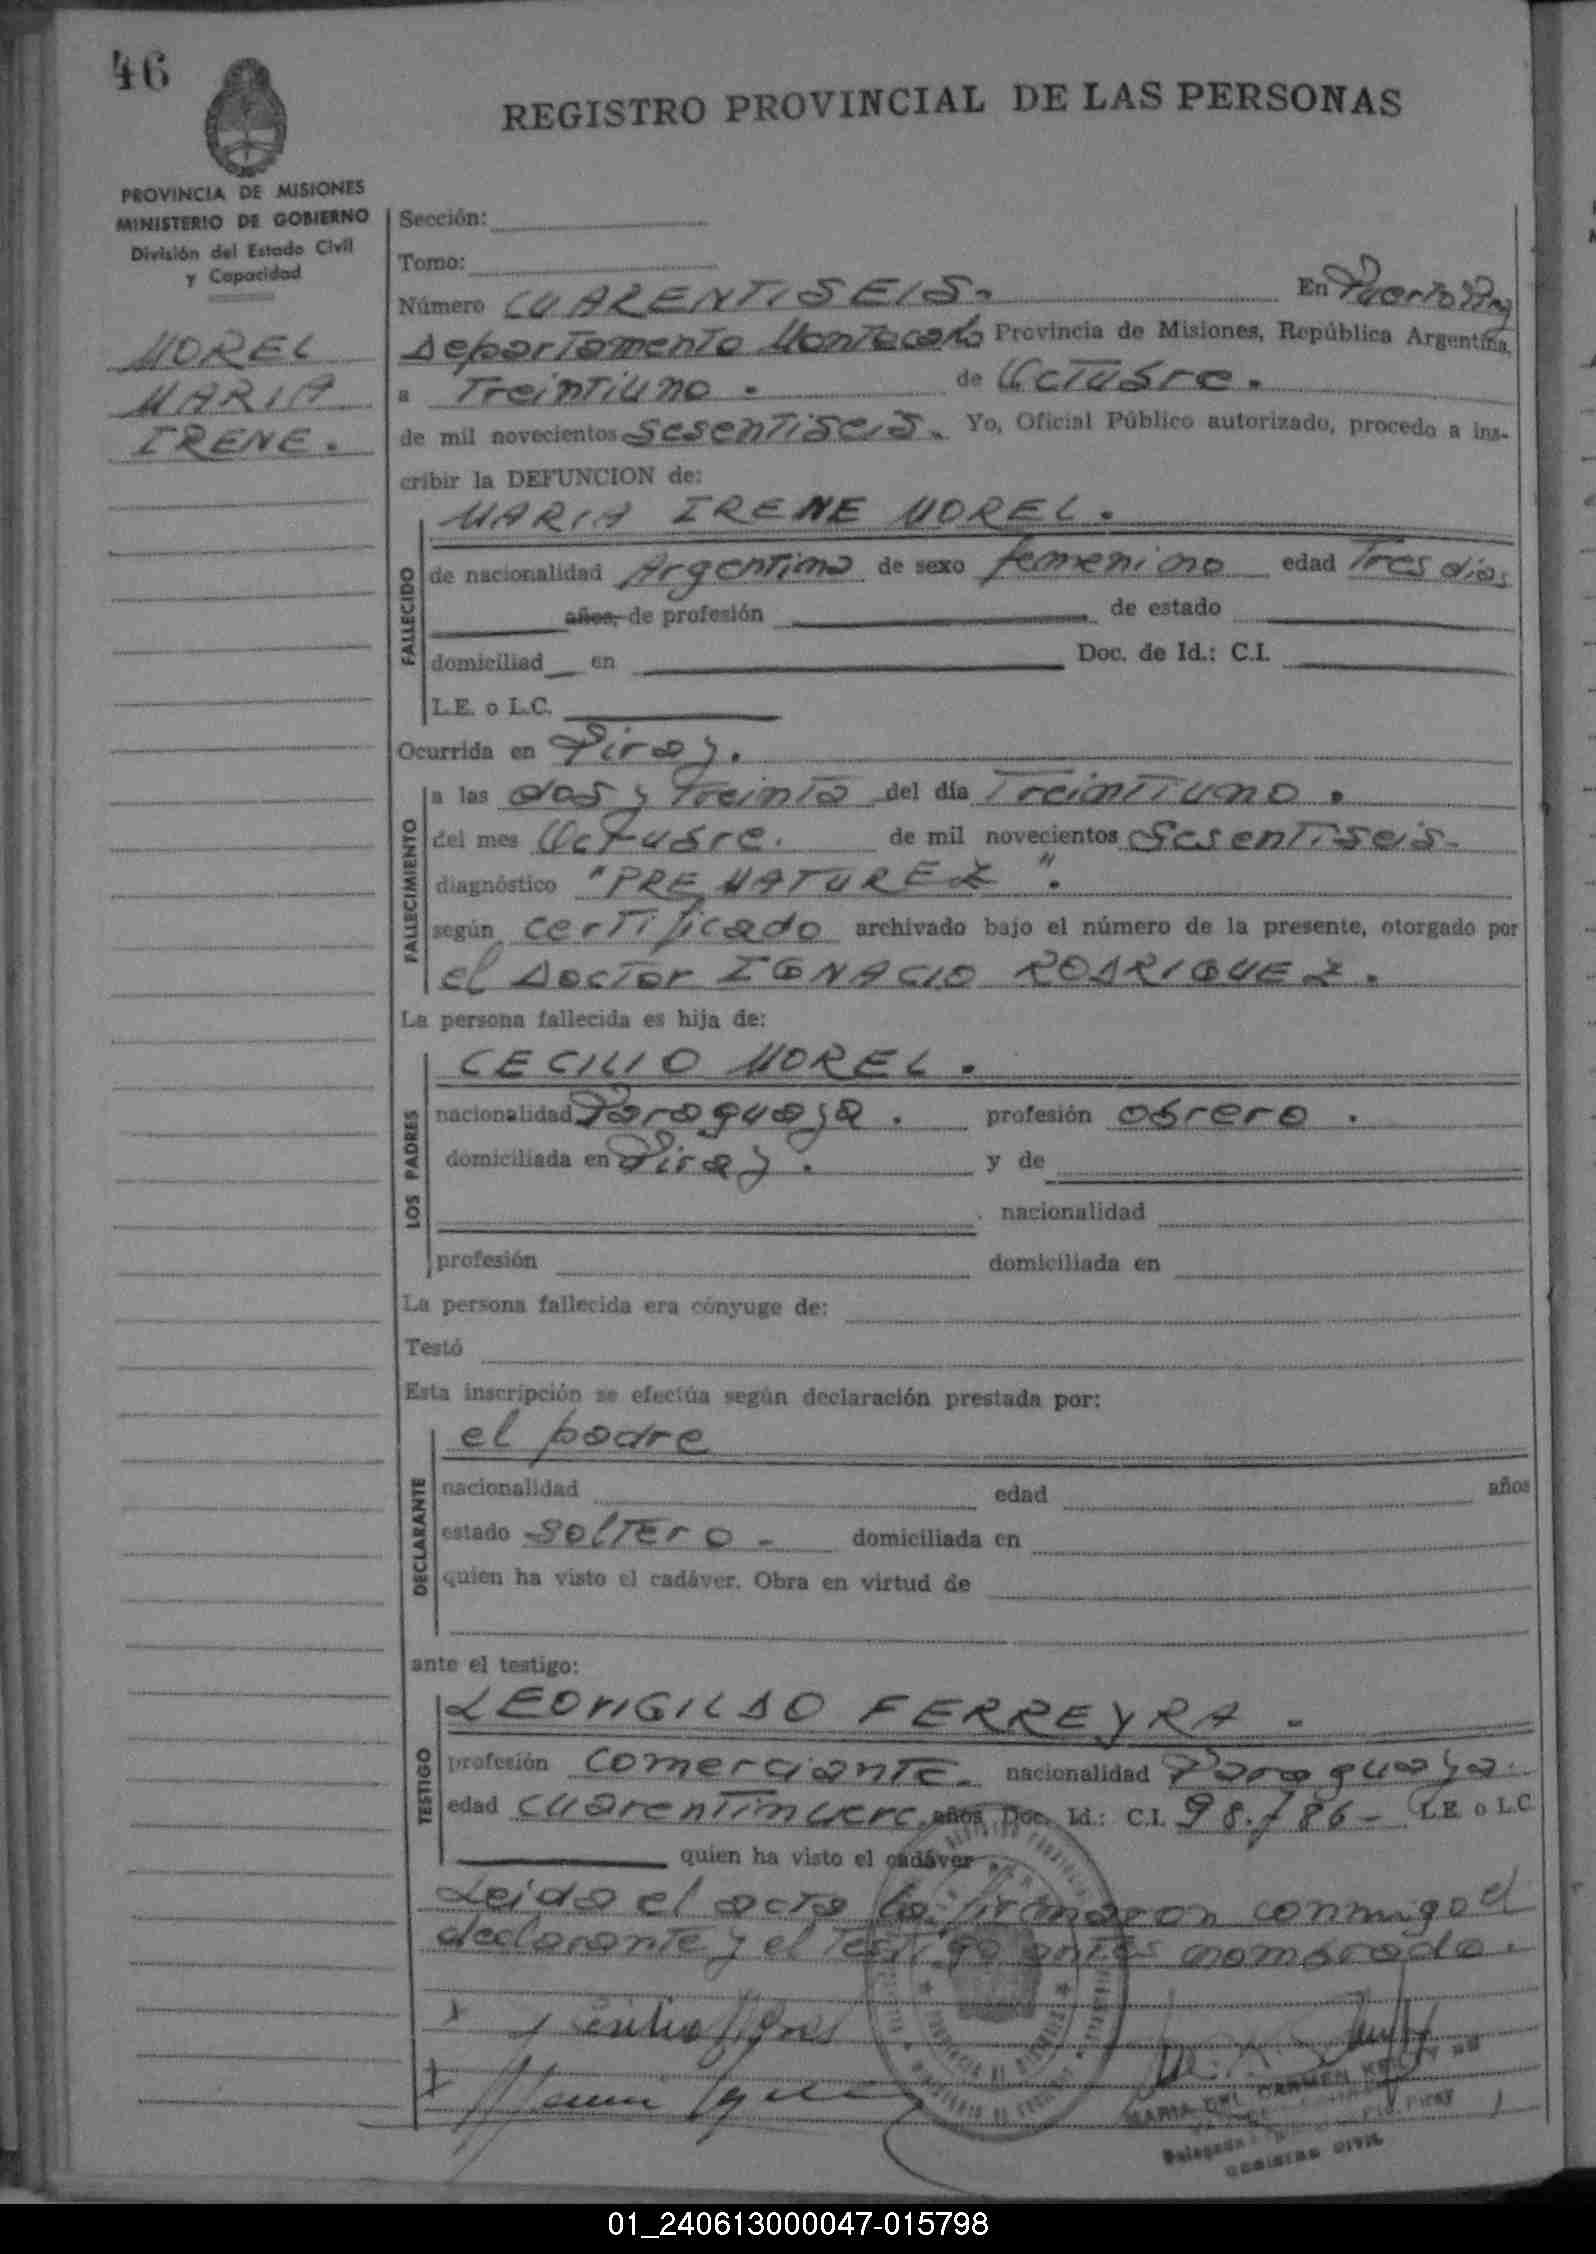 46
REGISTRO PROVINCIAL DE LAS PERSONAS
PROVINCIA DE MISIONES
MINISTERIO DE GOBIERNO
División del Estado Civil
y Capacidad
MOREL
MARIA
IRENE.
Sección:
Tomo:
Número CUARENTISEIS. En Puerto Piray
Departamento Montecarlo Provincia de Misiones, República Argentina,
a Treintiuno. de Octubre.
de mil novecientos sesentiseis. Yo, Oficial Público autorizado, procedo a ins-
cribir la DEFUNCION de:
MARIA IRENE MOREL.
FALLECIDO
de nacionalidad Argentina de sexo femenino edad Tres dias
años, de profesión de estado
domiciliad en Doc. de Id.: C.I.
L.E. o L.C.
Ocurrida en Piray.
FALLECIMIENTO
a las dos y Treinta del día Treintiuno.
del mes Octubre. de mil novecientos Sesentiseis.
diagnóstico "PREMATUREZ".
según certificado archivado bajo el número de la presente, otorgado por
el Doctor IGNACIO RODRIGUEZ.
La persona fallecida es hija de:
LOS PADRES
CECILIO MOREL.
nacionalidad Paraguaya. profesión obrero.
domiciliada en Piray. y de
nacionalidad
profesión domiciliada en
La persona fallecida era cónyuge de:
Testó
Esta inscripción se efectúa según declaración prestada por:
DECLARANTE
el padre
nacionalidad edad años
estado SOLTERO - domiciliada en
quien ha visto el cadáver. Obra en virtud de
ante el testigo:
TESTIGO
LEOVIGILDO FERREYRA.
profesión comerciante. nacionalidad Paraguaya.
edad cuarentinueve años Doc. Id.: C.I. 98.786- L.E. o L.C.
quien ha visto el cadáver
Leida el acta la firmaron conmigo el
declarante y el Testigo antes nombrado.
MARIA DEL CARMEN
Delegada
REGISTRO CIVIL
01_240613000047-015798